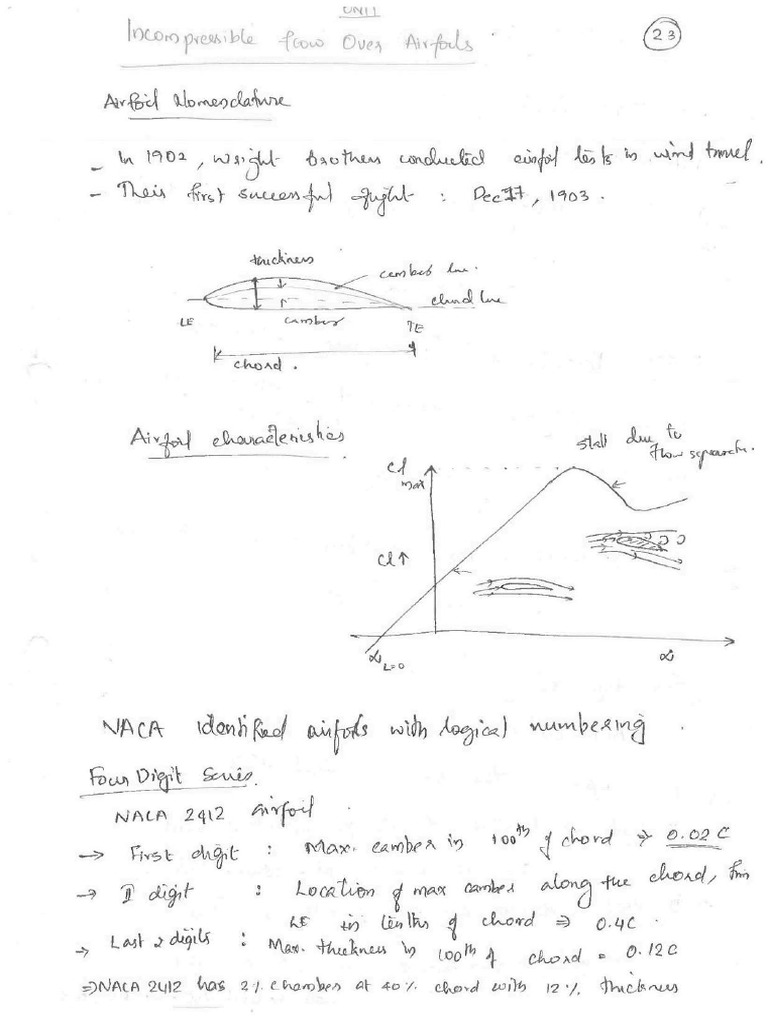 UNIT
Incompressible flow Over Airfoils
23
Airfoil Nomenclature
- In 1902, wright brothers conducted airfoil tests in wind tunnel.
- Their first successful flight : Dec 17, 1903.
thickness
camber line.
chord line
LE
camber
TE
chord.
Airfoil characteristics
stall due to
flow separation.
Cl max
Cl↑
α L=0
α
NACA identified airfoils with logical numbering.
Four Digit Series.
NACA 2412 airfoil
→ First digit : Max. camber in 100th of chord ⇒ 0.02C
→ II digit : Location of max camber along the chord, frm
LE in tenths of chord ⇒ 0.4C.
→ Last 2 digits : Max. thickness in 100th of chord = 0.12C
⇒ NACA 2412 has 2% chamber at 40% chord with 12% thickness